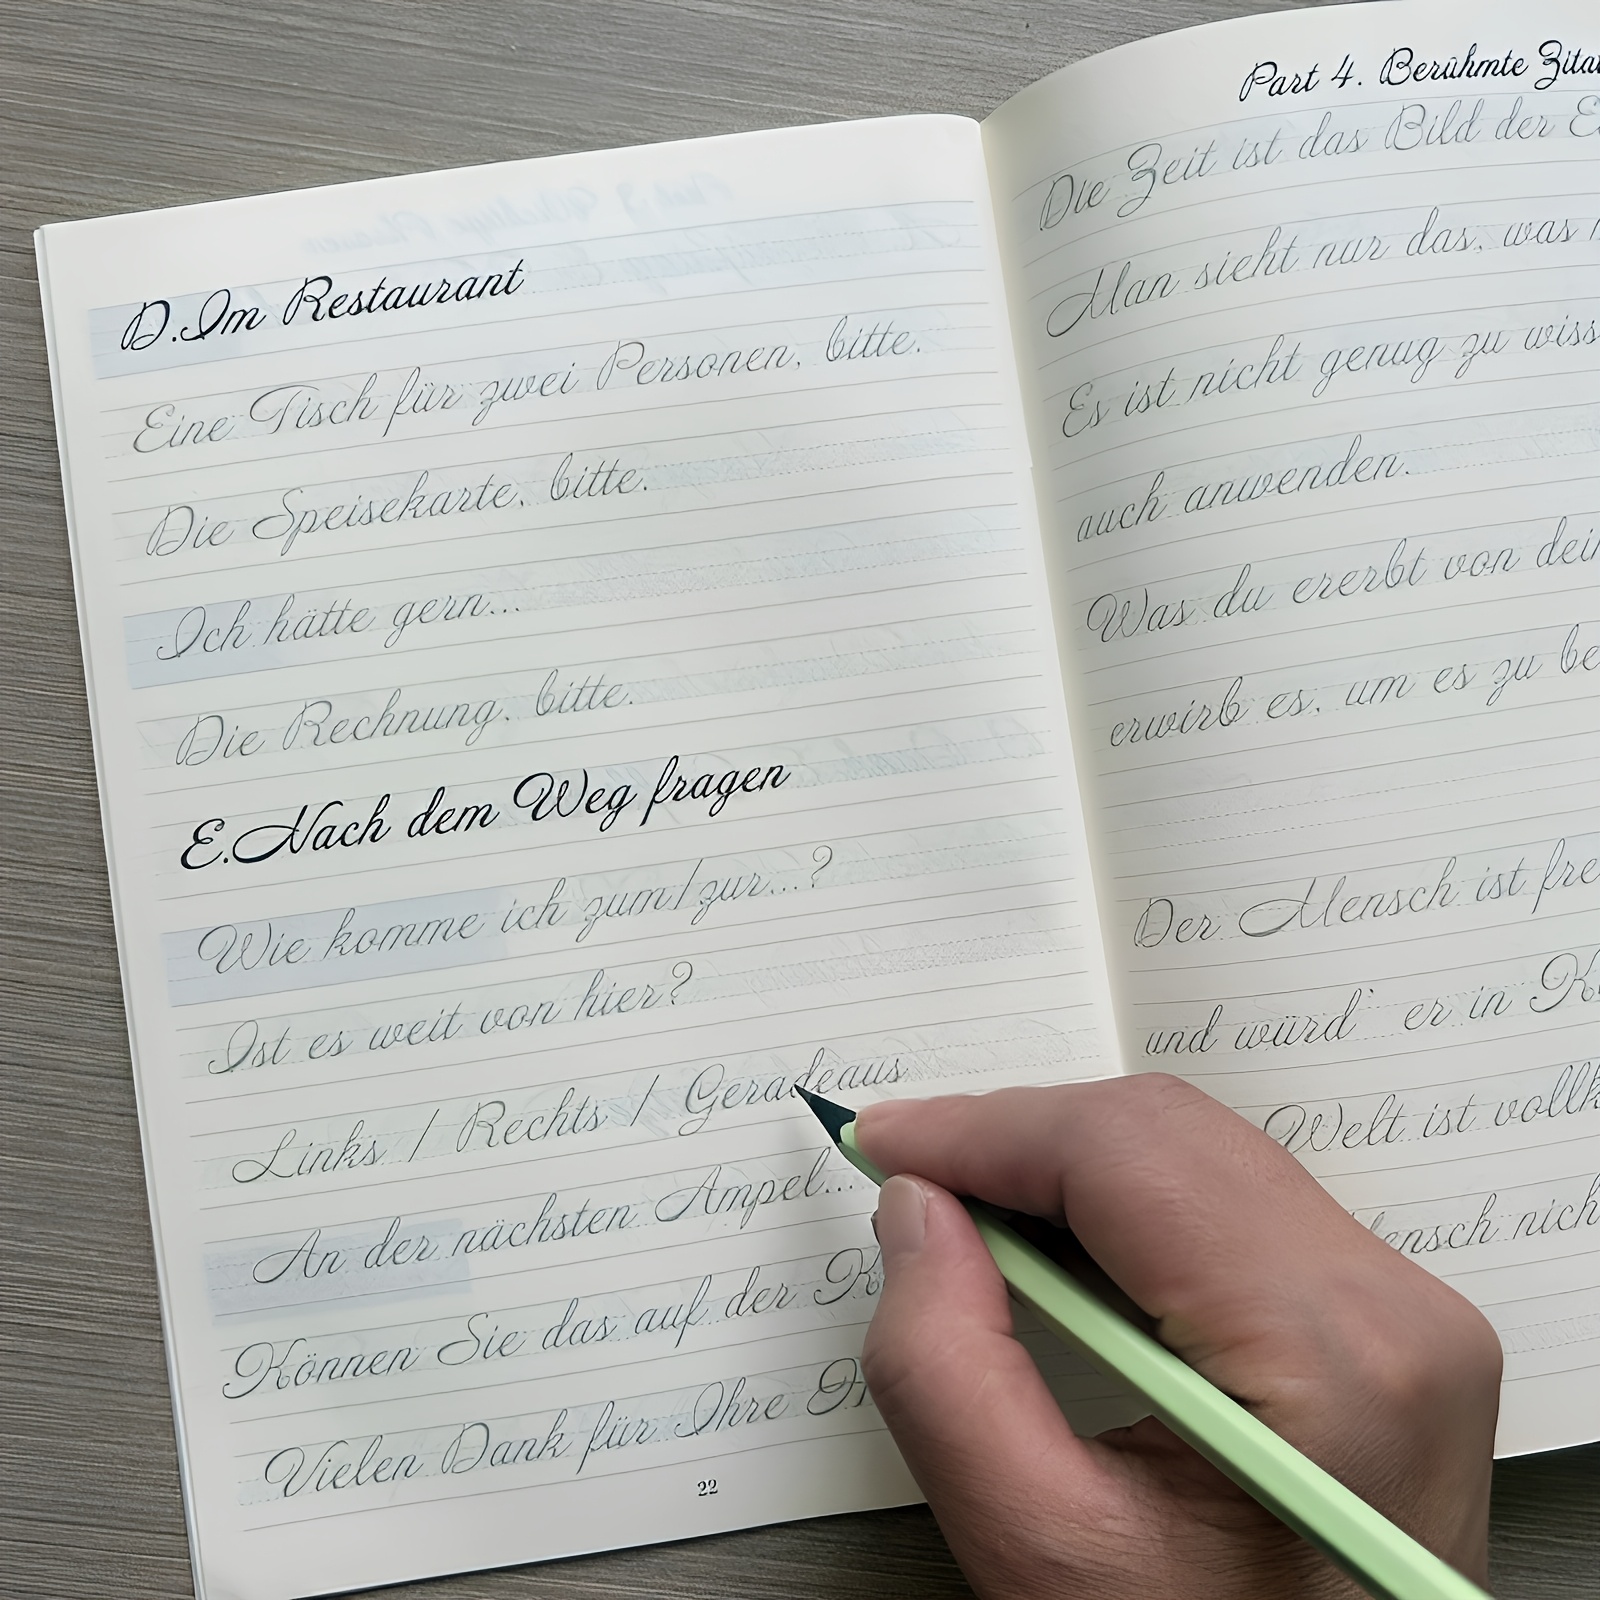 D.Im Restaurant
Eine Tisch für zwei Personen, bitte.
Die Speisekarte, bitte.
Ich hätte gern...
Die Rechnung, bitte.
E.Nach dem Weg fragen
Wie komme ich zum/zur...?
Ist es weit von hier?
Links / Rechts / Geradeaus
An der nächsten Ampel...
Können Sie das auf der
Vielen Dank für Ihre
22
Part 4. Berühmte
Die Zeit ist das Bild der
Man sieht nur das, was
Es ist nicht genug zu
auch anwenden.
Was du ererbt von
erwirb es, um es zu
Der Mensch ist
und würd' er in
Welt ist